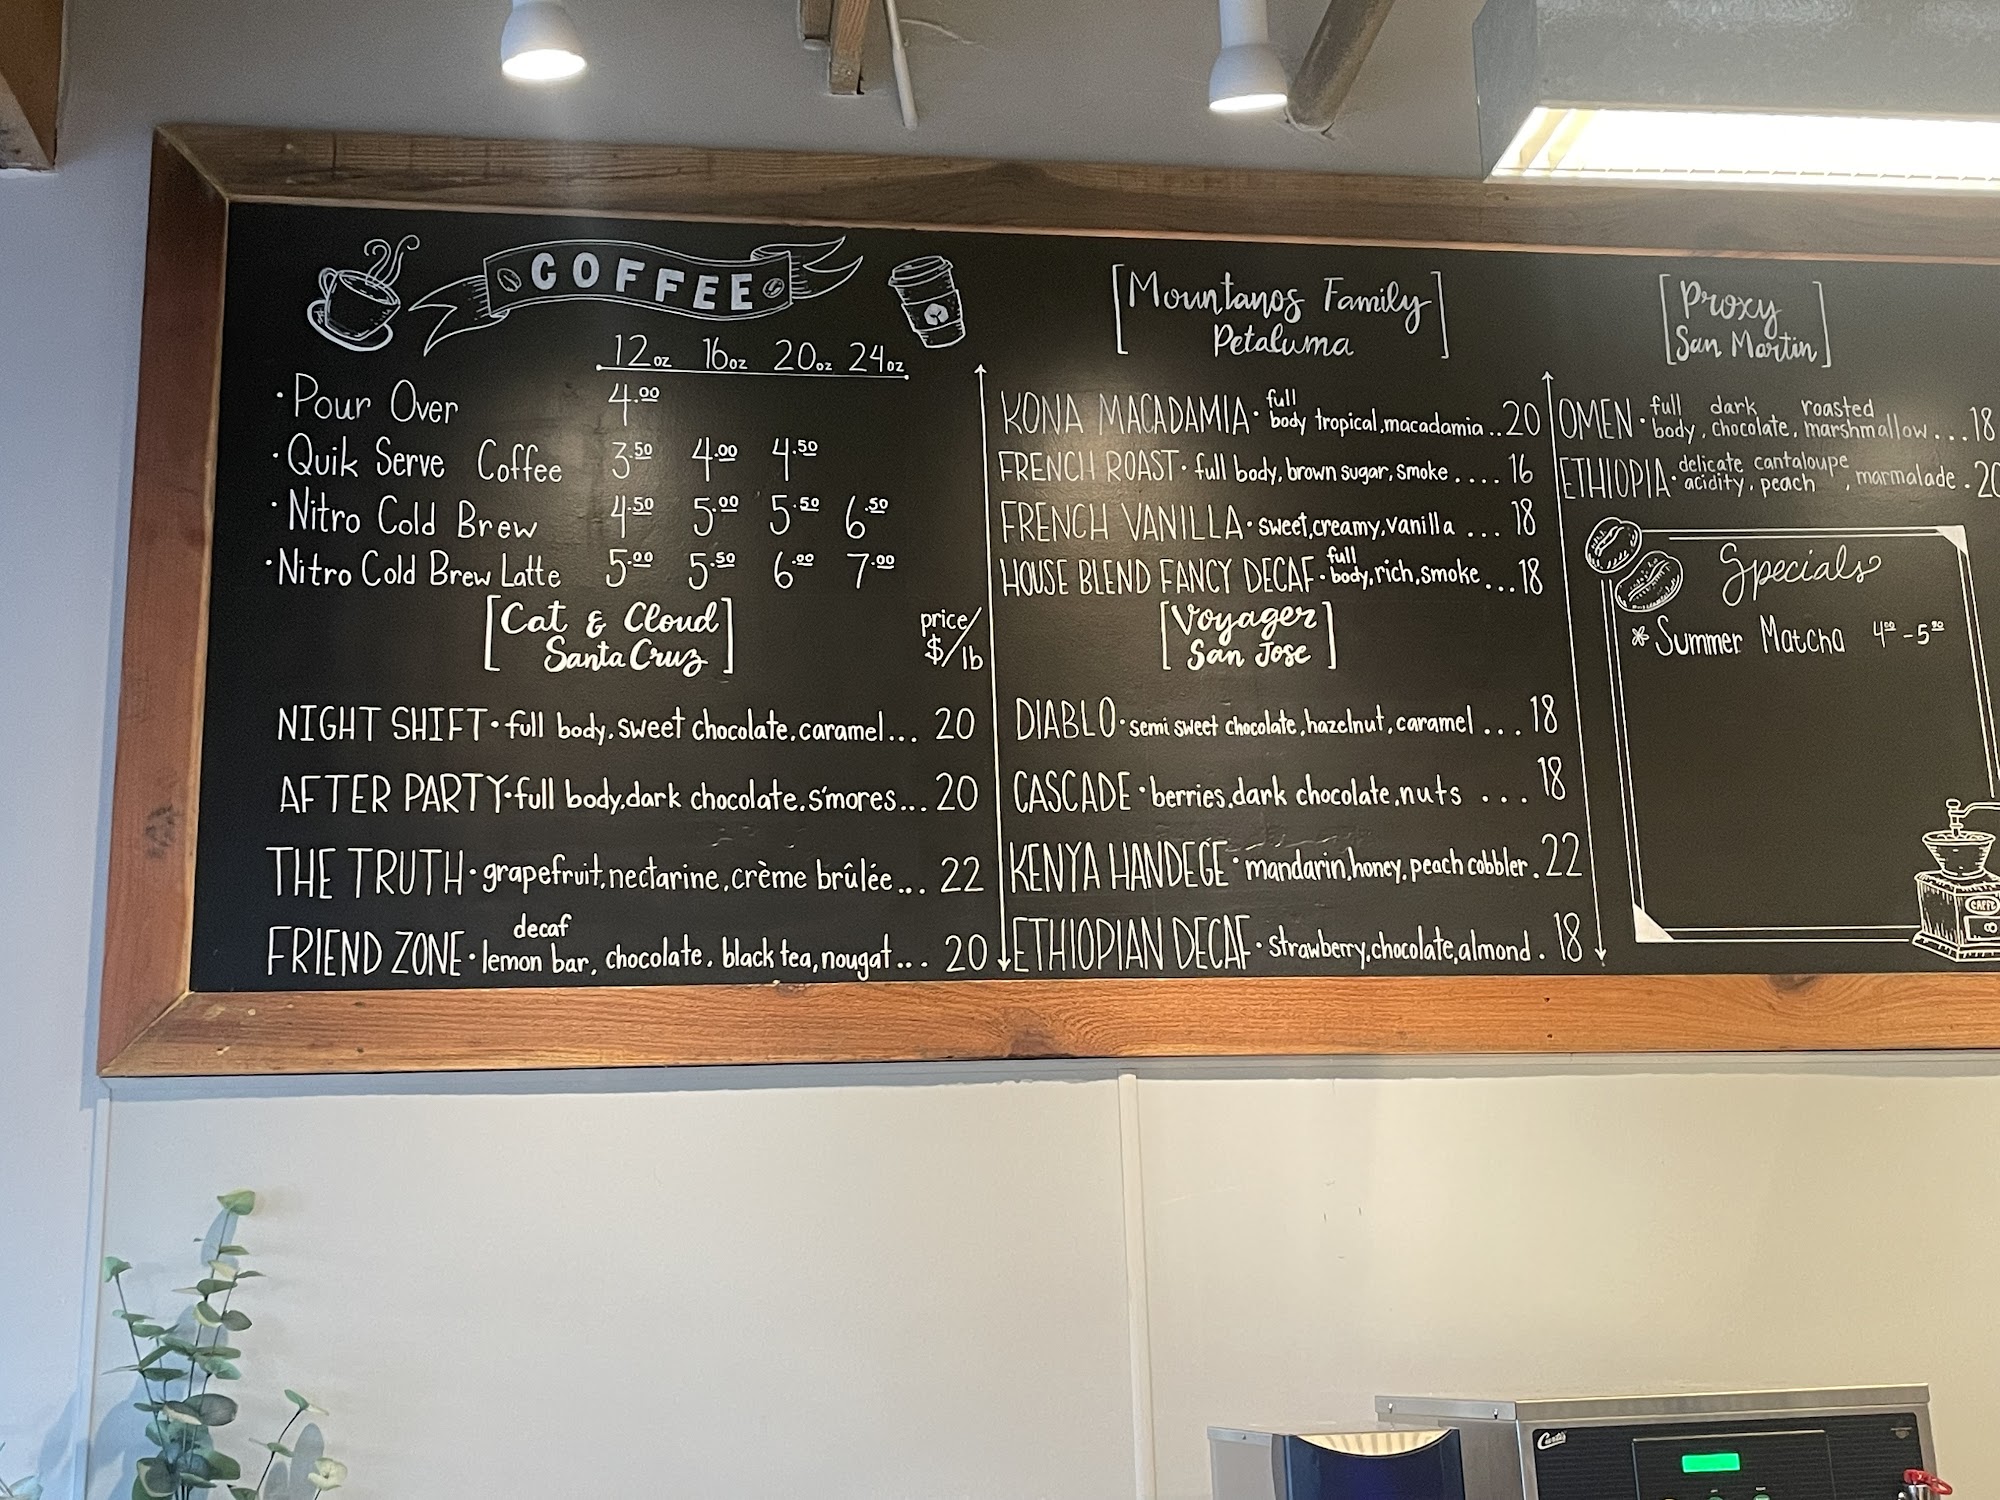 COFFEE
12oz 16oz 20oz 24oz
· Pour Over 4.00
· Quik Serve Coffee 3.50 4.00 4.50
· Nitro Cold Brew 4.50 5.00 5.50 6.50
· Nitro Cold Brew Latte 5.00 5.50 6.00 7.00
[Cat & Cloud
Santa Cruz]
price/
$/lb
NIGHT SHIFT · full body, sweet chocolate, caramel... 20
AFTER PARTY · full body, dark chocolate, s'mores... 20
THE TRUTH · grapefruit, nectarine, crème brûlée... 22
decaf
FRIEND ZONE · lemon bar, chocolate, black tea, nougat... 20
[Mountanos Family
Petaluma]
KONA MACADAMIA · full body tropical, macadamia.. 20
FRENCH ROAST · full body, brown sugar, smoke.... 16
FRENCH VANILLA · sweet, creamy, vanilla ... 18
HOUSE BLEND FANCY DECAF · full body, rich, smoke... 18
[Voyager
San Jose]
DIABLO · semi sweet chocolate, hazelnut, caramel ... 18
CASCADE · berries, dark chocolate, nuts ... 18
KENYA HANDEGE · mandarin, honey, peach cobbler. 22
ETHIOPIAN DECAF · strawberry, chocolate, almond. 18
[Proxy
San Martin]
OMEN · full body, dark chocolate, roasted marshmallow... 18
ETHIOPIA · delicate acidity, cantaloupe peach, marmalade. 20
Specials
* Summer Matcha 4.00 - 5.50
CAFFE
Curtis